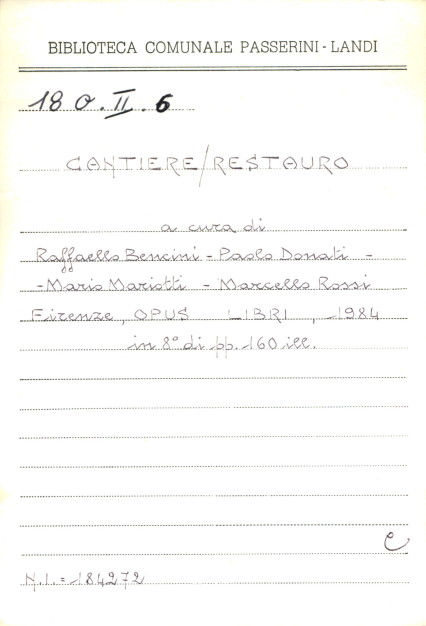 BIBLIOTECA COMUNALE PASSERINI - LANDI
180.II.6
CANTIERE/RESTAURO
a cura di
Raffaello Bencini - Paolo Donati -
- Mario Mariotti - Marcello Rossi
Firenze, OPUS LIBRI, 1984
in 8° di pp. 160 ill.
e
N.I. = 184272